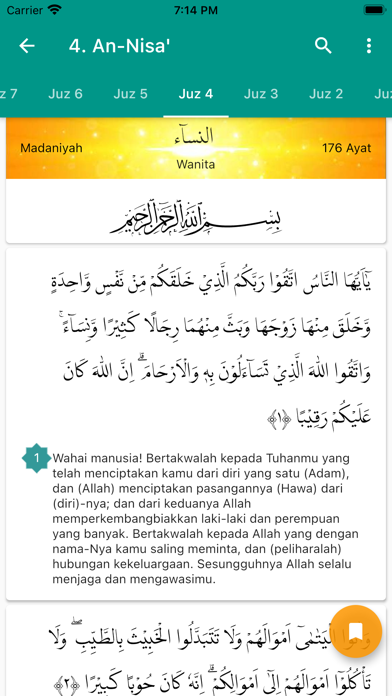 Carrier 7:14 PM
4. An-Nisa'
z 7 Juz 6 Juz 5 Juz 4 Juz 3 Juz 2 Juz
النساۤء
Madaniyah Wanita 176 Ayat
بِسْمِ اللّٰهِ الرَّحْمٰنِ الرَّحِيْمِ
يٰٓاَيُّهَا النَّاسُ اتَّقُوْا رَبَّكُمُ الَّذِيْ خَلَقَكُمْ مِّنْ نَّفْسٍ وَّاحِدَةٍ
وَّخَلَقَ مِنْهَا زَوْجَهَا وَبَثَّ مِنْهُمَا رِجَالًا كَثِيْرًا وَّنِسَاۤءً ۚ
وَاتَّقُوا اللّٰهَ الَّذِيْ تَسَاۤءَلُوْنَ بِهٖ وَالْاَرْحَامَ ۗ اِنَّ اللّٰهَ كَانَ
عَلَيْكُمْ رَقِيْبًا ﴿١﴾
1 Wahai manusia! Bertakwalah kepada Tuhanmu yang
telah menciptakan kamu dari diri yang satu (Adam),
dan (Allah) menciptakan pasangannya (Hawa) dari
(diri)-nya; dan dari keduanya Allah
memperkembangbiakkan laki-laki dan perempuan
yang banyak. Bertakwalah kepada Allah yang dengan
nama-Nya kamu saling meminta, dan (peliharalah)
hubungan kekeluargaan. Sesungguhnya Allah selalu
menjaga dan mengawasimu.
وَاٰتُوا الْيَتٰمٰٓى اَمْوَالَهُمْ وَلَا تَتَبَدَّلُوا الْخَبِيْثَ بِالطَّيِّبِ ۖ وَلَا
تَأْكُلُوْٓا اَمْوَالَهُمْ اِلٰٓى اَمْوَالِكُمْ ۗ اِنَّهٗ كَانَ حُوْبًا كَبِيْرًا ﴿٢﴾